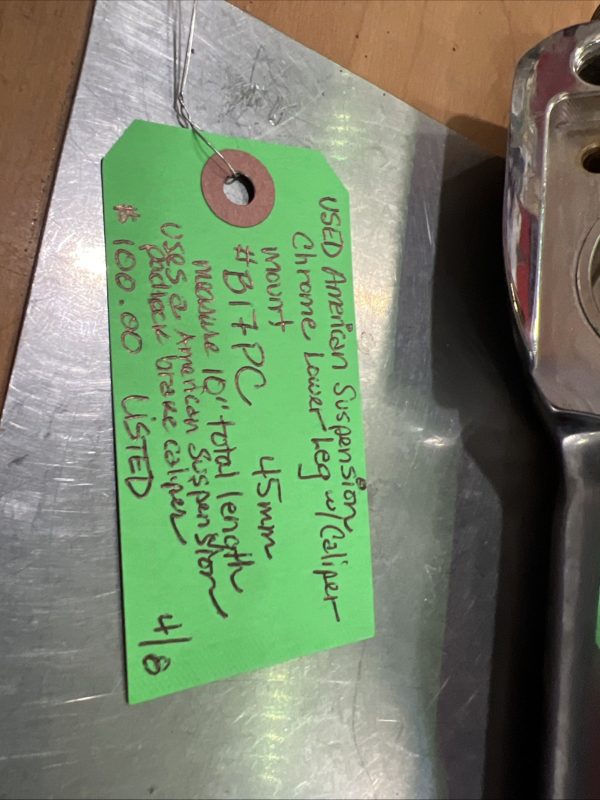 USED American Suspension
Chrome Lower Leg w/Caliper
mount
#B17PC 45mm
measure 10" total length
uses a American Suspension
padlock brake caliper
$100.00 LISTED 4/8